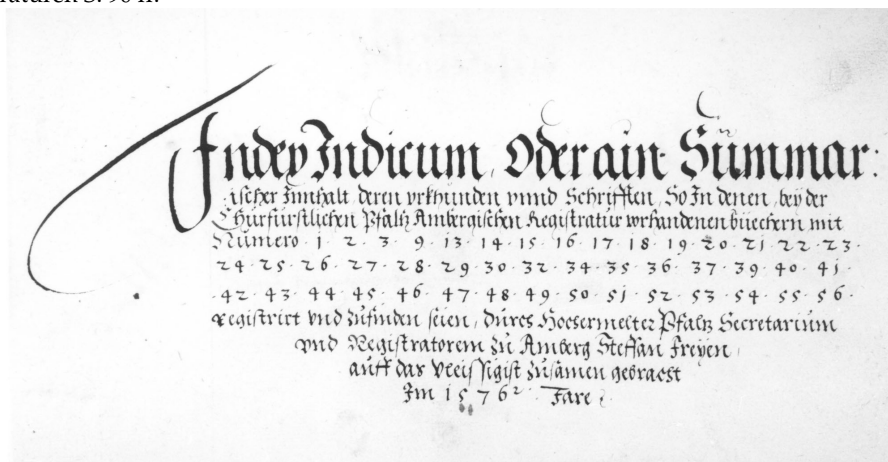 raturen S. 90 ff.
Index Indicum, Oder ain Summar:
ischer Innhalt, deren vrkhunden vnnd Schrifften, So In denen, bey der
Churfürstlichen Pfaltz Ambergischen Registratur vorhandenen büechern mit
Numero · 1 · 2 · 3 · 9 · 13 · 14 · 15 · 16 · 17 · 18 · 19 · 20 · 21 · 22 · 23 ·
24 · 25 · 26 · 27 · 28 · 29 · 30 · 32 · 34 · 35 · 36 · 37 · 39 · 40 · 41 ·
· 42 · 43 · 44 · 45 · 46 · 47 · 48 · 49 · 50 · 51 · 52 · 53 · 54 · 55 · 56 ·
registrirt vnd zufinden seien, durch Pfaltz Secretarium
vnd Registratorem zu Amberg Steffan Freyen,
auff das vleissigist zusamen gebracht
Im 1576 Jare